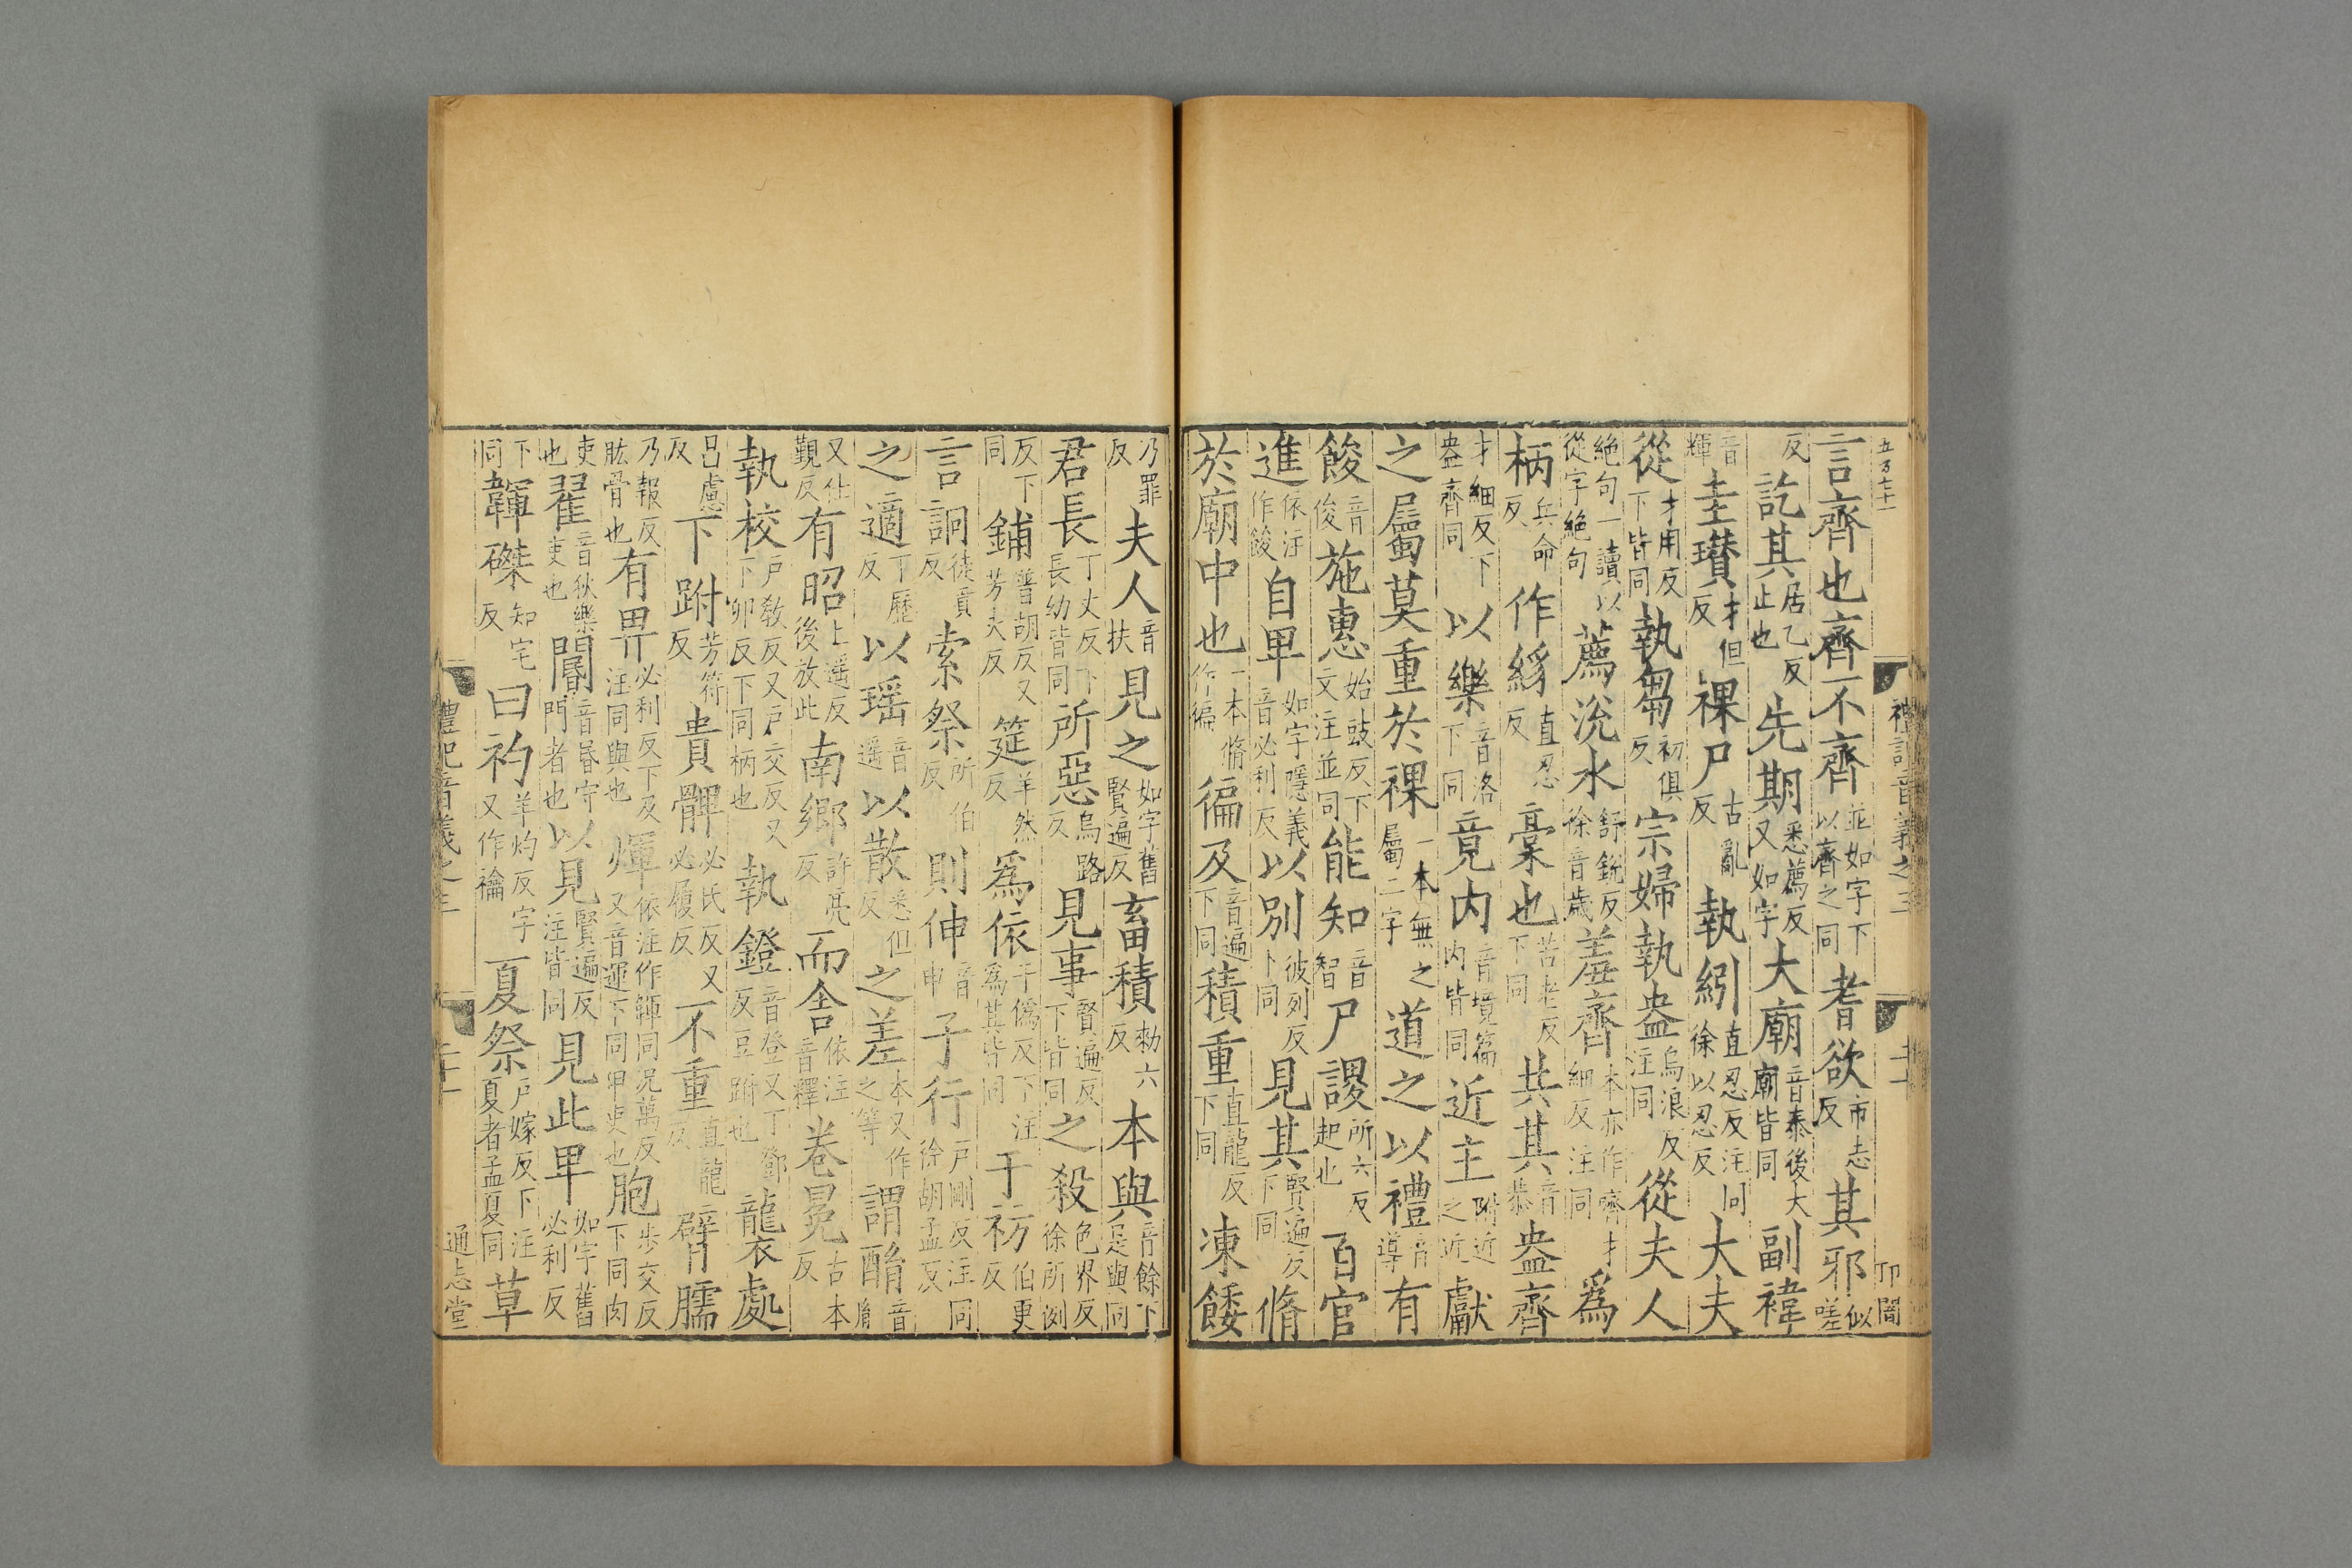 五万七十一
禮記音義之三
二十一
言齊也齊不齊並如字下以齊之同耆欲市志反其邪似嗟
反訖其居乙反止也先期悉薦反又如字大廟音泰後大廟皆同副褘
音輝圭瓚才但反祼尸古亂反執紖直忍反注同徐以忍反大夫
從才用反下皆同執芻初俱反宗婦執盎烏浪反注同從夫人
絕句一讀以從字絕句薦涗水舒銳反徐音歲羞齊本亦作齊才細反注同爲
柄兵命反作紖直忍反稾也苦老反下同共其音恭盎齊
才細反下盎齊同以樂音洛下同竟内音境篇内皆同近主附近之近獻
之屬莫重於祼一本無之屬二字道之以禮音導有
餕音俊施惠始豉反下文注並同能知音智尸謖所六反起也百官
進依注作餕自卑如字隱義音必利反以別彼列反下同見其賢遍反下同脩
於廟中也一本脩作徧徧及音遍下同積重直龍反下同凍餒
乃罪反夫人音扶見之如字舊賢遍反畜積勑六反本與音餘下是與同
君長丁丈反下長幼皆同所惡烏路反見事賢遍反下皆同之殺色界反徐所例
反下同鋪普胡反又芳夫反筵羊然反爲依于僞反下注爲其皆同于祊伯更反
言詗徒貢反索祭所伯反則伸音申子行戶剛反注同徐胡孟反
之適丁歷反以瑶音遥以散悉但反之差本又作之等謂酳音胤
又仕覲反有昭上遥反後放此南鄉許亮反而舍依注音釋卷冕古本反
執校戶敎反又戶交反又下卯反下同柄也執鐙音登又丁鄧反豆跗也襲處
呂慮反下跗芳符反貴髀必氏反又必履反不重直龍反臂臑
乃報反肱骨也有畀必利反下及注同與也煇依注作韗同况萬反又音運下同甲吏也胞步交反下同肉
吏也翟音狄樂吏也閽音昬守門者也以見賢遍反注皆同見此卑如字舊必利反
下同韗磔知宅反曰礿羊灼反字又作禴夏祭戶嫁反下注夏者孟夏同草
禮記音義之三
二十一
通志堂